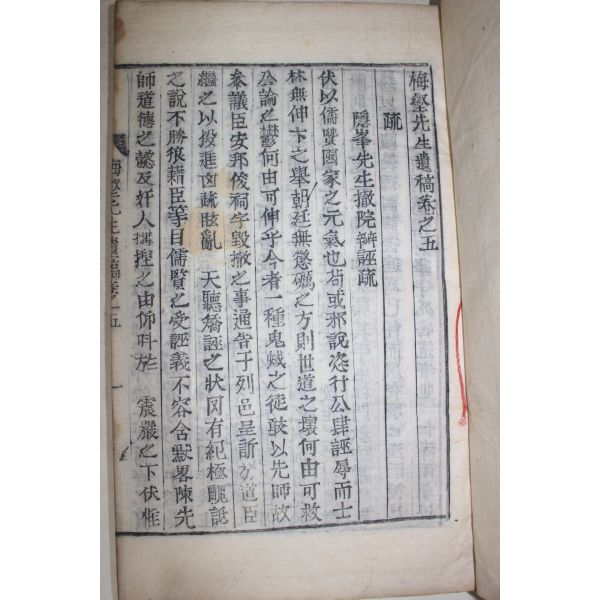 梅壑先生遺稿卷之五
疏
隱峯先生撤院辨誣疏
伏以儒賢國家之元氣也苟或邪說恣行公肆誣辱而士
林無伸卞之舉朝廷無懲礪之方則世道之壞何由可救
公論之鬱何由可伸乎今者一種鬼蜮之徒敢以先師故
參議臣安邦俊祠宇毀撤之事通告于列邑呈訴於道臣
繼之以投進凶疏眩亂 天聽矯誣之狀罔有紀極醜詆
之說不勝狼藉臣等目儒賢之受誣義不容含默畧陳先
師道德之懿及奸人搆捏之由仰呌於 震嚴之下伏惟
梅壑先生遺稿卷之五 一